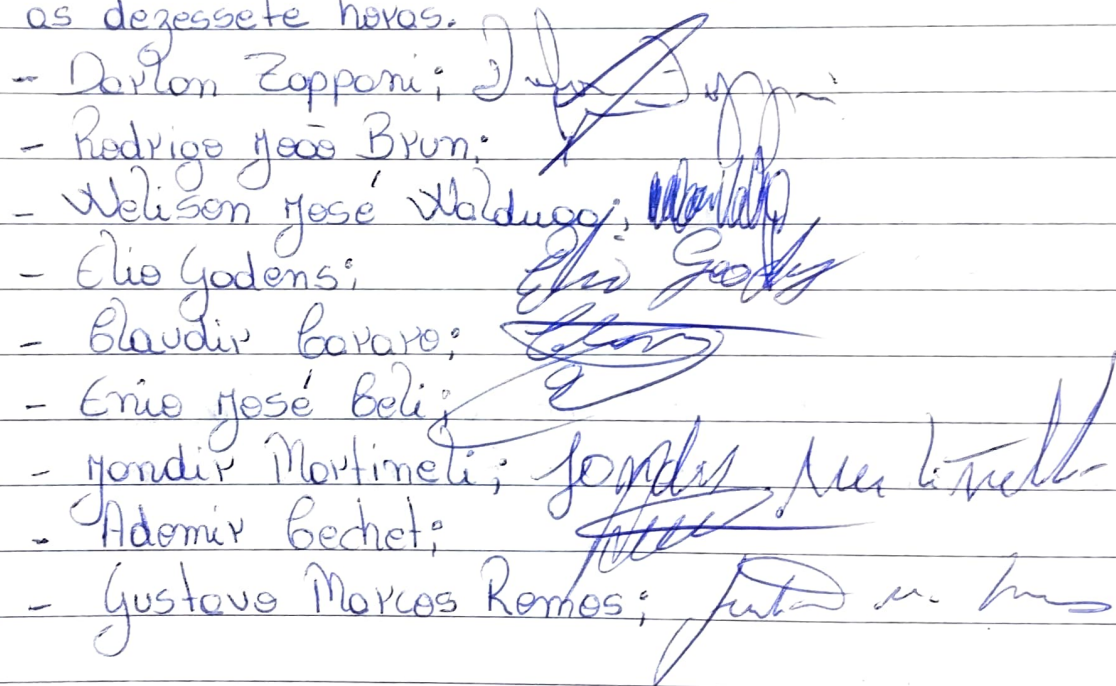 as dezessete horas.
- Darlan Zappani;
- Rodrigo João Brun;
- Welison José Waldugga;
- Elio Godens; Elio Godens
- Claudir Cararo;
- Enio José Celi;
- Jandir Martineli; Jandir Martinelli
- Ademir Cechet;
- Gustavo Marcos Ramos;